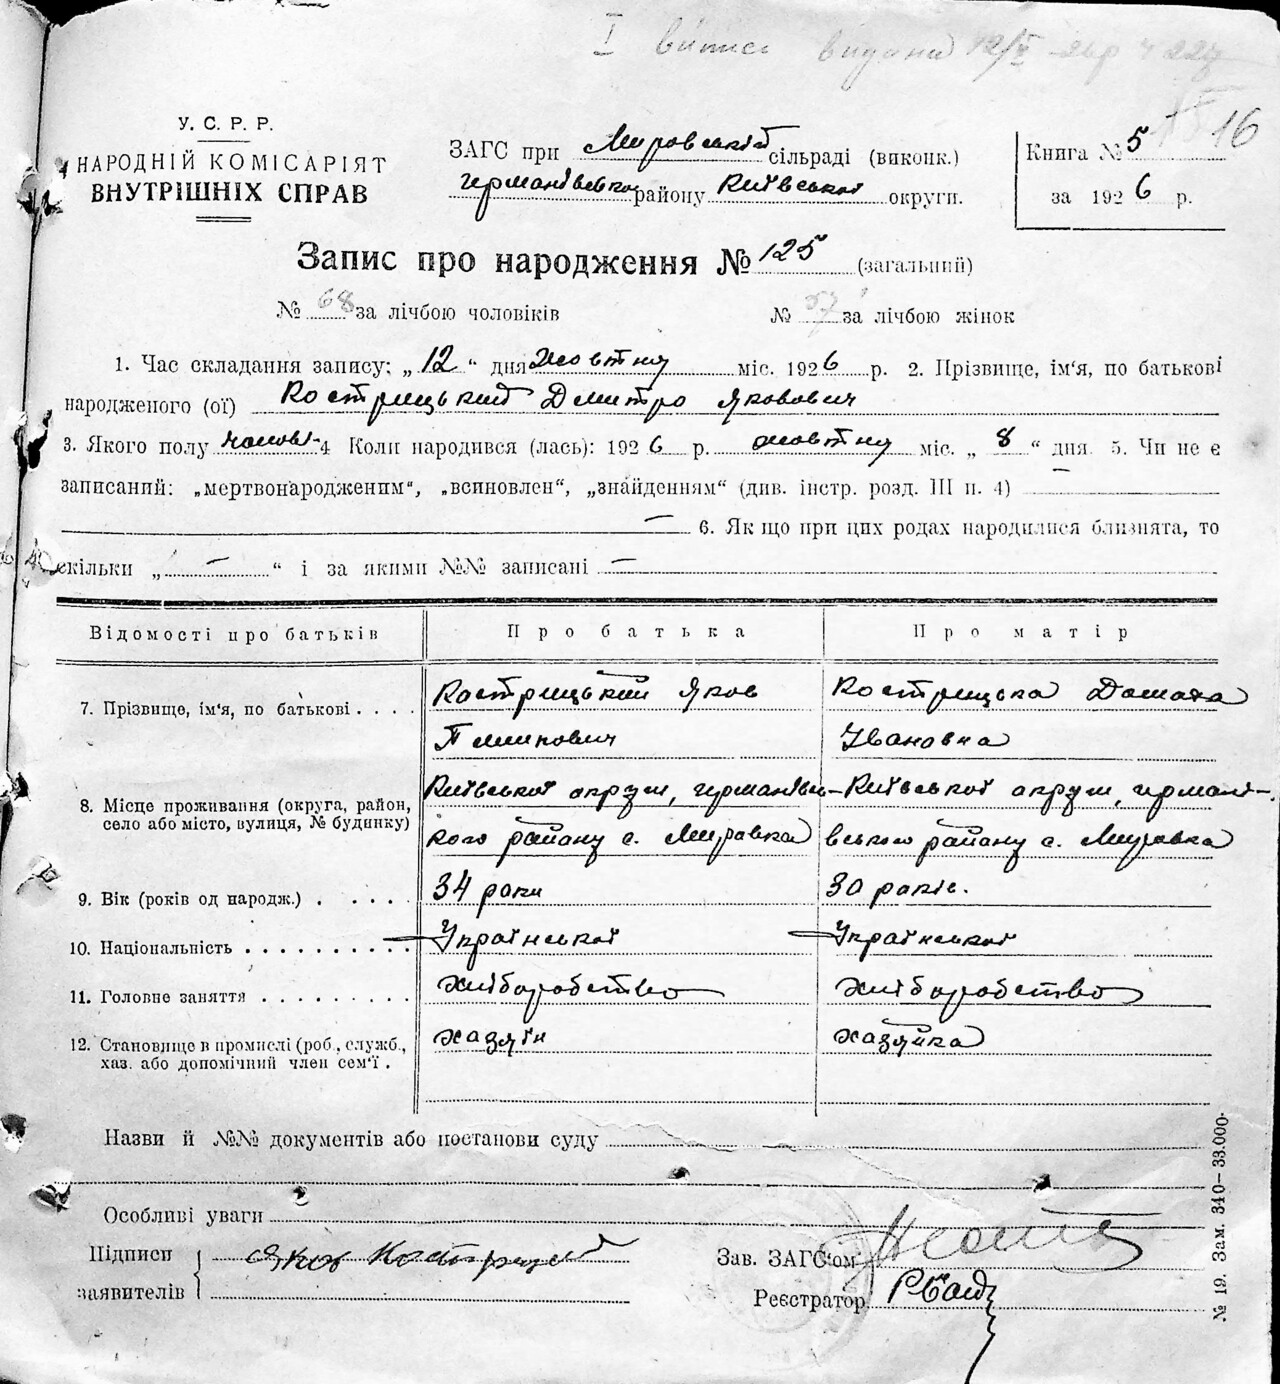 І витяг видано 12/V
16
У. С. Р. Р.
НАРОДНІЙ КОМІСАРІЯТ
ВНУТРІШНІХ СПРАВ
ЗАГС при Мировській сільраді (виконк.)
Германівсько району Київської округи.
Книга № 5
за 1926 р.
Запис про народження № 125 (загальний)
№ 68 за лічбою чоловіків № 57 за лічбою жінок
1. Час складання запису: „12“ дня жовтня міс. 1926 р. 2. Прізвище, ім'я, по батькові
народженого (ої) Кострицький Дмитро Якович
3. Якого полу чолові- 4 Коли народився (лась): 1926 р. жовтня міс. „8“ дня. 5. Чи не є
записаний: „мертвонародженим“, „всиновлен“, „знайденням“ (див. інстр. розд. III п. 4)
— 6. Як що при цих родах народилися близнята, то
скільки „—“ і за якими №№ записані —
Відомості про батьків Про батька Про матір
7. Прізвище, ім'я, по батькові . . . . Кострицький Яков Кострицька Домаха
Пилипович Івановна
8. Місце проживання (округа, район, село або місто, вулиця, № будинку) Київської округи, Германівсь- Київської округи, Германі-
кого району с. Мировка вського району с. Мировка
9. Вік (років од народж.) . . . . . 34 роки 30 років.
10. Національність . . . . . . . . . . Української Української
11. Головне заняття . . . . . . . . . хліборобство хліборобство
12. Становище в промислі (роб., служб., хаз. або допомічний член сем'ї . хазяїн хазяйка
Назви й №№ документів або постанови суду
Особливі уваги
Підписи заявителів Яков Кострицкий
Зав. ЗАГС'ом
Реєстратор
№ 19. Зам. 340—33.000.